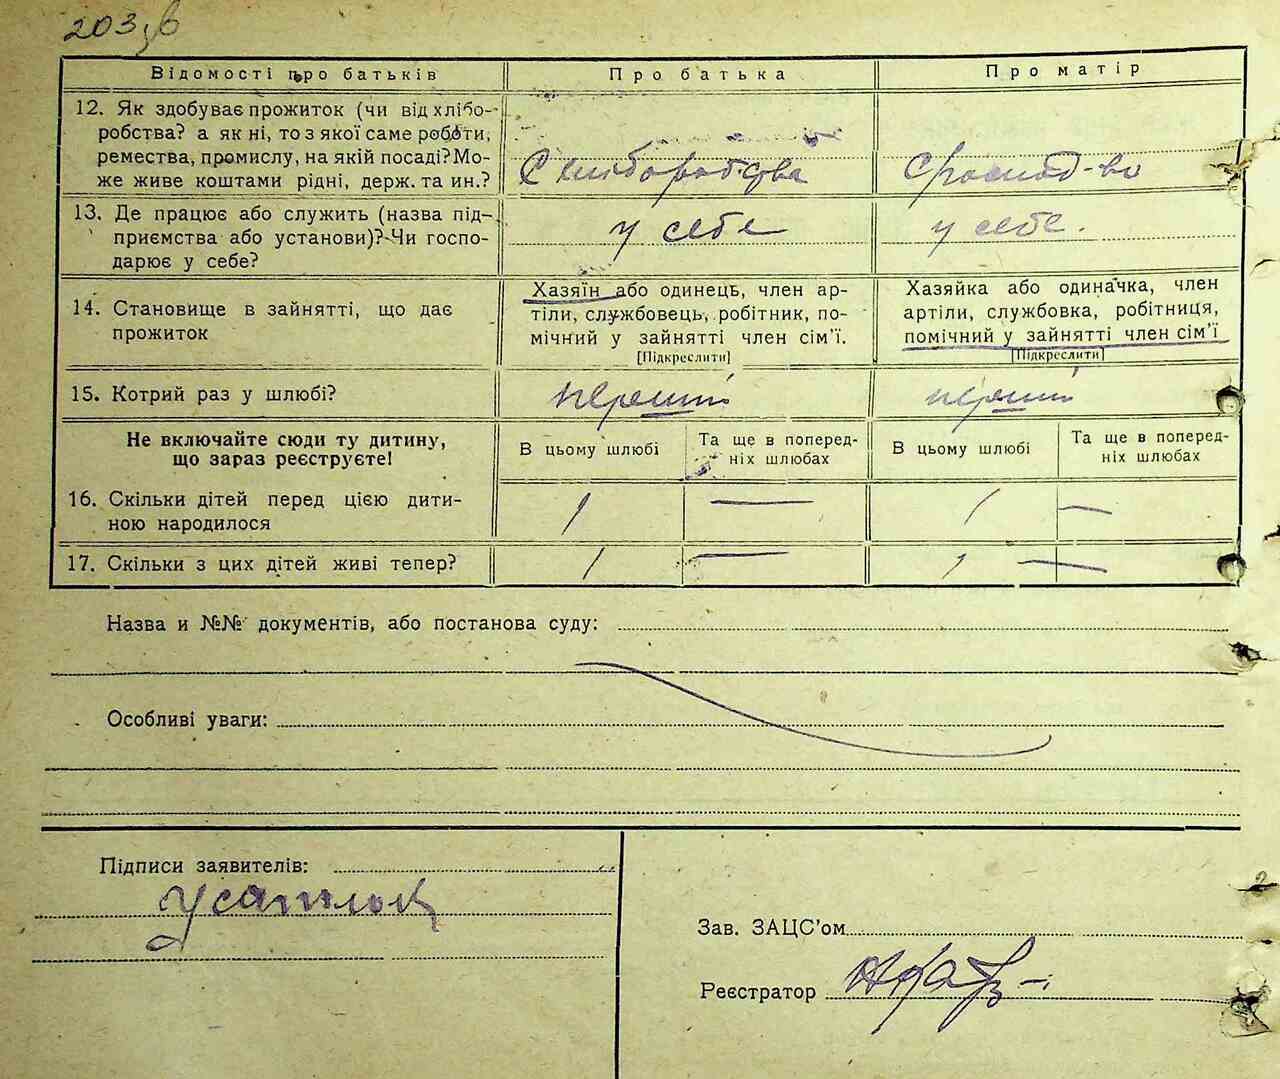 203 зв
Відомості про батьків Про батька Про матір
12. Як здобуває прожиток (чи від хлібо-
робства? а як ні, то з якої саме роботи,
ремества, промислу, на якій посаді? Мо-
же живе коштами рідні, держ. та ин.?
З хліборобства
13. Де працює або служить (назва під-
приємства або установи)? Чи госпо-
дарює у себе?
у себе у себе.
14. Становище в зайнятті, що дає
прожиток
Хазяїн або одинець, член ар-
тіли, службовець, робітник, по-
мічний у зайнятті член сім'ї.
[Підкреслити]
Хазяйка або одиначка, член
артіли, службовка, робітниця,
помічний у зайнятті член сім'ї
[Підкреслити]
15. Котрий раз у шлюбі? перший перший
Не включайте сюди ту дитину,
що зараз реєструєте!
В цьому шлюбі
Та ще в поперед-
ніх шлюбах
В цьому шлюбі
Та ще в поперед-
ніх шлюбах
16. Скільки дітей перед цією дити-
ною народилося
1 — 1 —
17. Скільки з цих дітей живі тепер? 1 — 1 —
Назва и №№ документів, або постанова суду:
Особливі уваги:
Підписи заявителів:
Зав. ЗАЦС'ом
Реєстратор